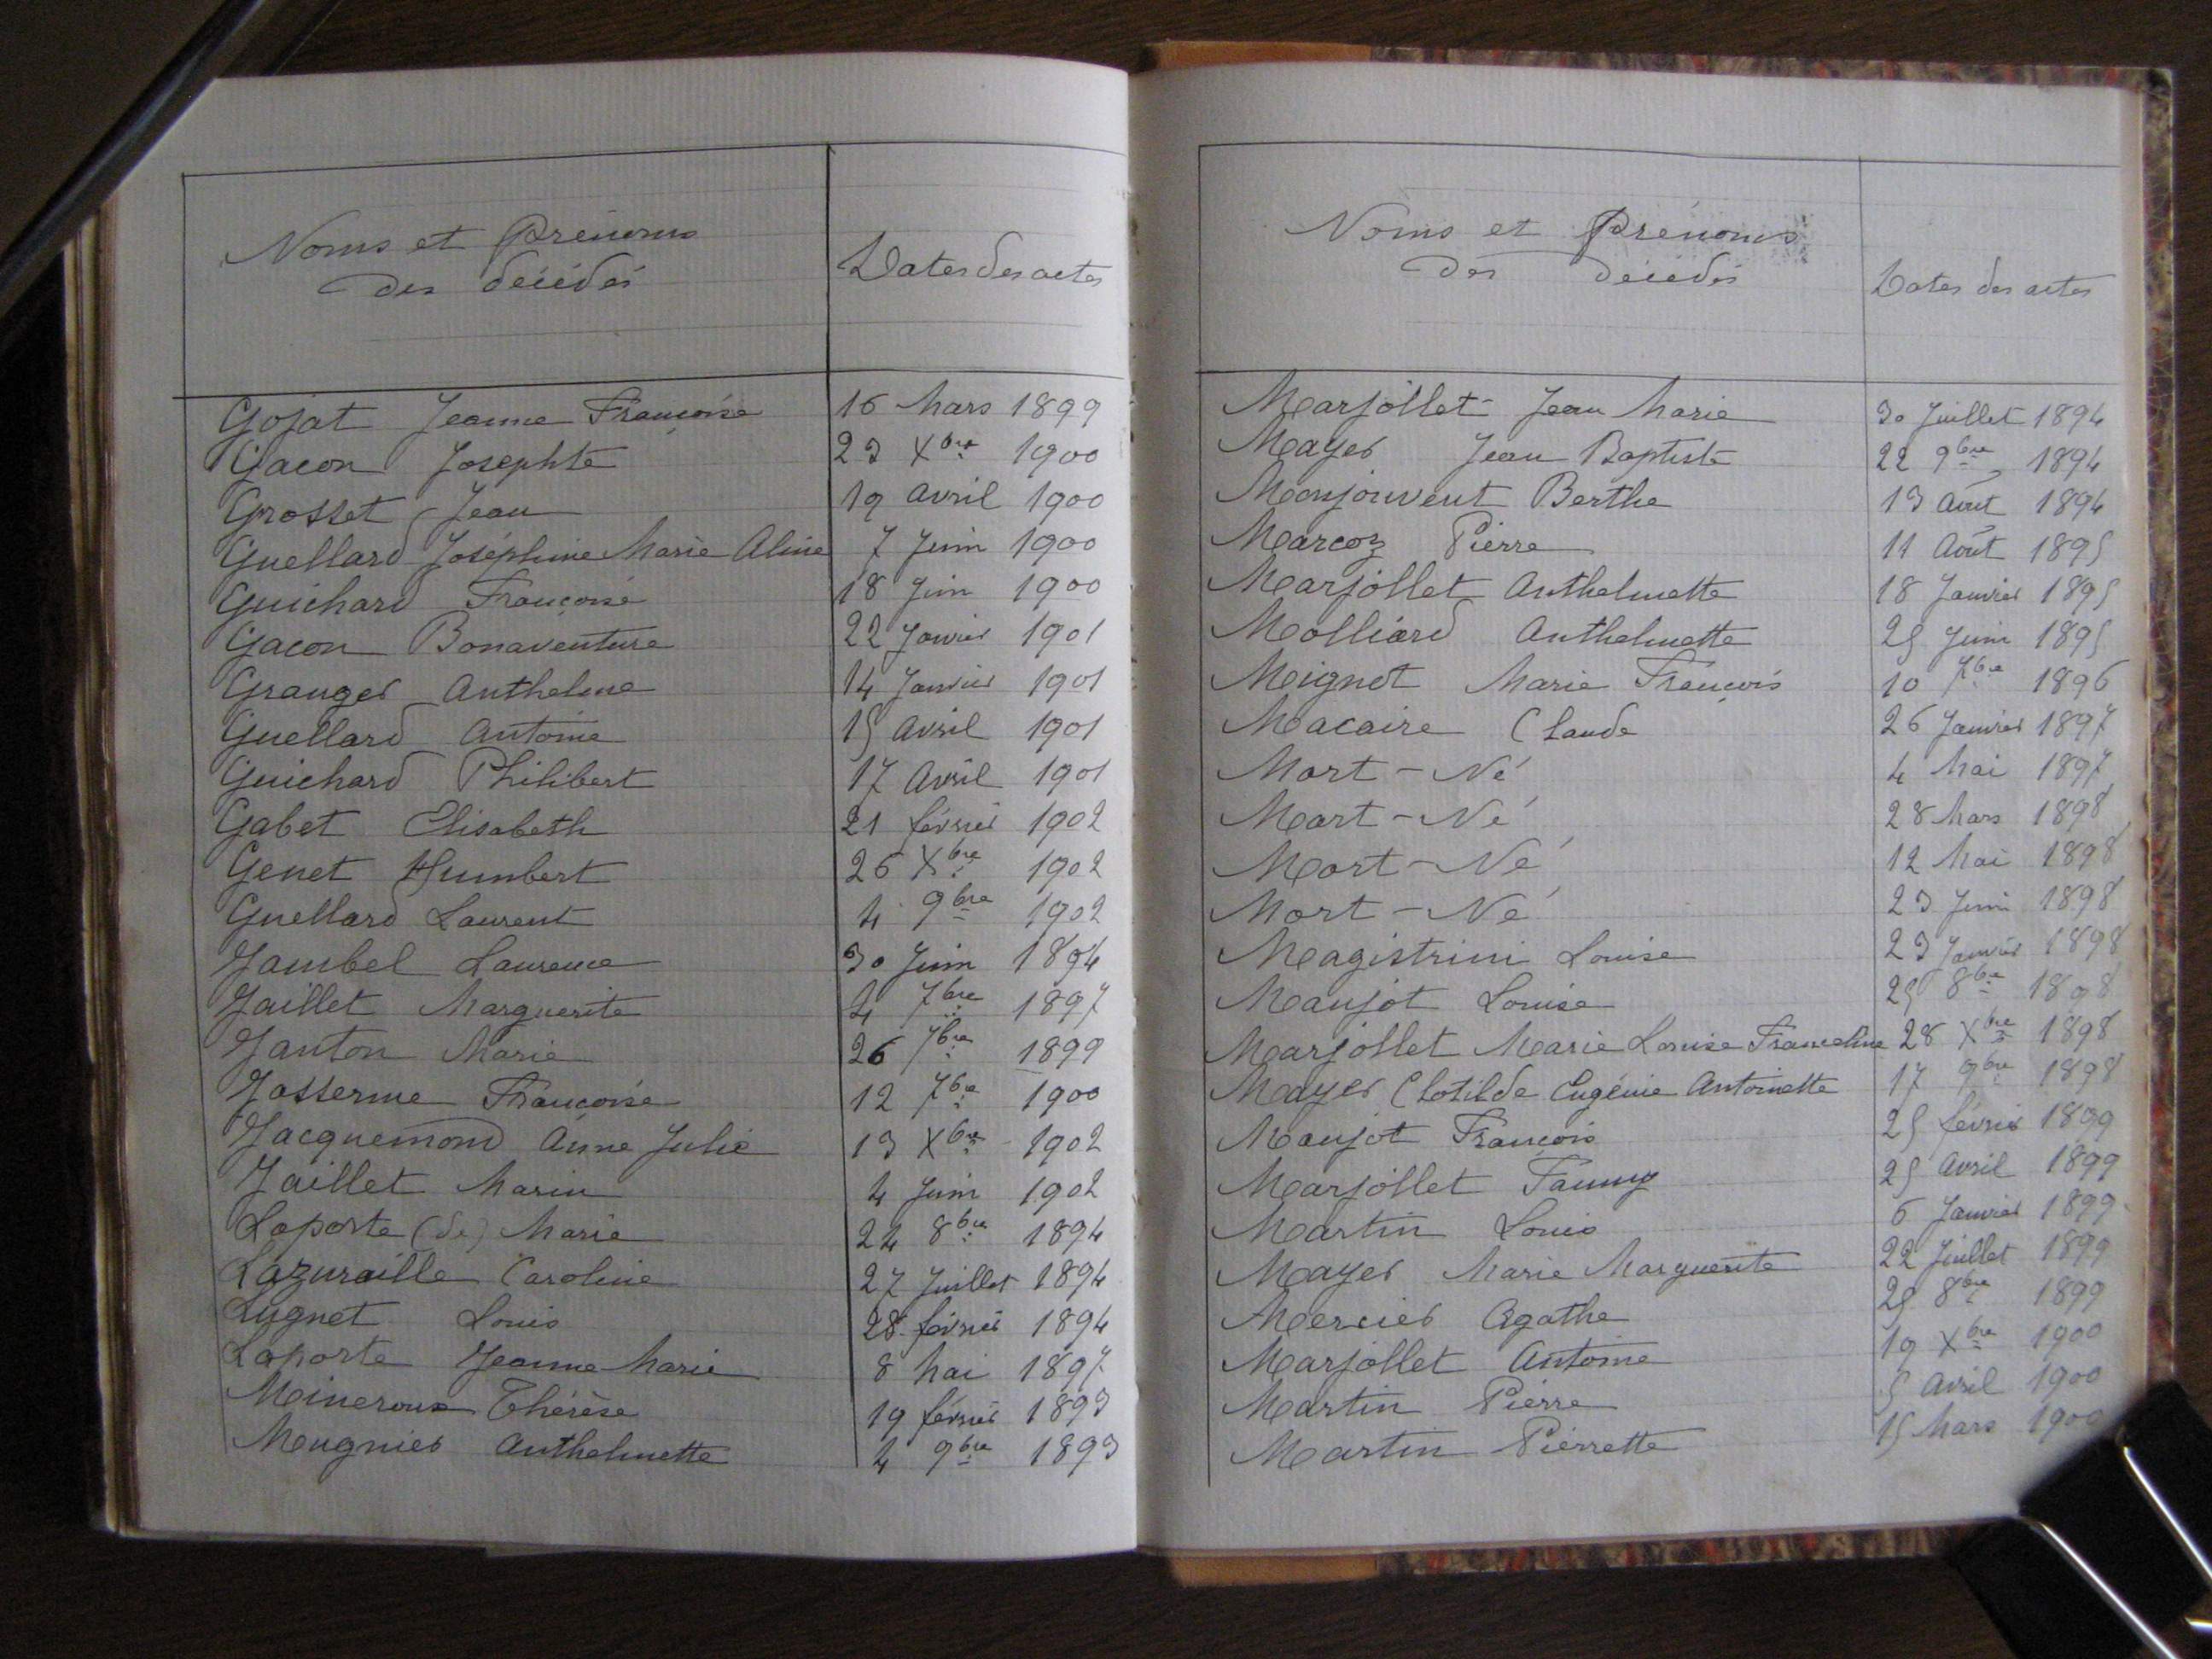 Noms et Prénoms
des décédés
Dates des actes
Gojat Jeanne Françoise 16 Mars 1899
Gacon Josephte 23 Xbre 1900
Grosset Jean 19 Avril 1900
Guellard Joséphine Marie Aline 7 Juin 1900
Guichard Françoise 18 Juin 1900
Gacon Bonaventure 22 Janvier 1901
Granger Anthelme 14 Janvier 1901
Guellard Antoine 15 Avril 1901
Guichard Philibert 17 Avril 1901
Gabet Elisabeth 21 février 1902
Genet Humbert 26 Xbre 1902
Guellard Laurent 4 9bre 1902
Jambel Laurence 30 Juin 1894
Jaillet Marguerite 4 7bre 1897
Janton Marie 26 7bre 1899
Josserme Françoise 12 7bre 1900
Jacquemond Anne Julie 13 Xbre 1902
Jaillet Marin 4 Juin 1902
Laporte (de) Marie 24 8bre 1894
Lazuraille Caroline 27 Juillet 1894
Lugnet Louis 28 février 1894
Laporte Jeanne Marie 8 Mai 1897
Meineroux Thérèse 19 février 1893
Meugnier Anthelmette 4 9bre 1893
Noms et Prénoms
des décédés
Dates des actes
Marjollet Jean Marie 30 Juillet 1894
Mayer Jean Baptiste 22 9bre 1894
Monjouvent Berthe 13 Août 1894
Marcoz Pierre 11 Août 1895
Marjollet Anthelmette 18 Janvier 1895
Molliard Anthelmette 25 Juin 1895
Meignot Marie François 10 7bre 1896
Macaire Claude 26 Janvier 1897
Mort-Né 4 Mai 1897
Mort-Né 28 Mars 1898
Mort-Né 12 Mai 1898
Mort-Né 23 Juin 1898
Magistrini Louise 23 Janvier 1898
Maujot Louise 25 8bre 1898
Marjollet Marie Louise Franceline 28 Xbre 1898
Mayer Clotilde Eugénie Antoinette 17 9bre 1898
Maujot François 25 février 1899
Marjollet Fanny 25 Avril 1899
Martin Louis 6 Janvier 1899
Mayer Marie Marguerite 22 Juillet 1899
Mercier Agathe 25 8bre 1899
Marjollet Antoine 19 Xbre 1900
Martin Pierre 5 Avril 1900
Martin Pierrette 15 Mars 1900